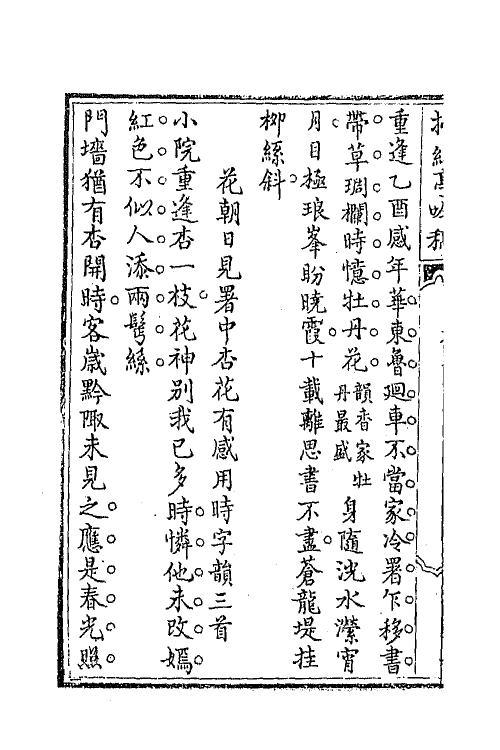 重逢乙酉感年華東魯廻車不當家冷署乍移書
帶草琱欄時憶牡丹花韻香家牡丹最盛身隨洸水瀠宵
月目極琅峯盼曉霞十載離思書不盡蒼龍堤挂
柳絲斜
花朝日見署中杏花有感用時字韻三首
小院重逢杏一枝花神別我已多時憐他未改嫣
紅色不似人添兩鬢絲
門墻猶有杏開時客歲黔陬未見之應是春光照